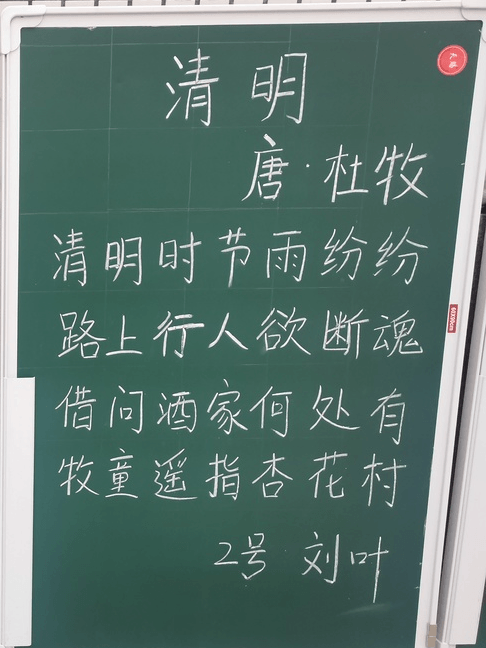 清明
唐·杜牧
清明时节雨纷纷
路上行人欲断魂
借问酒家何处有
牧童遥指杏花村
2号 刘叶
60X90cm